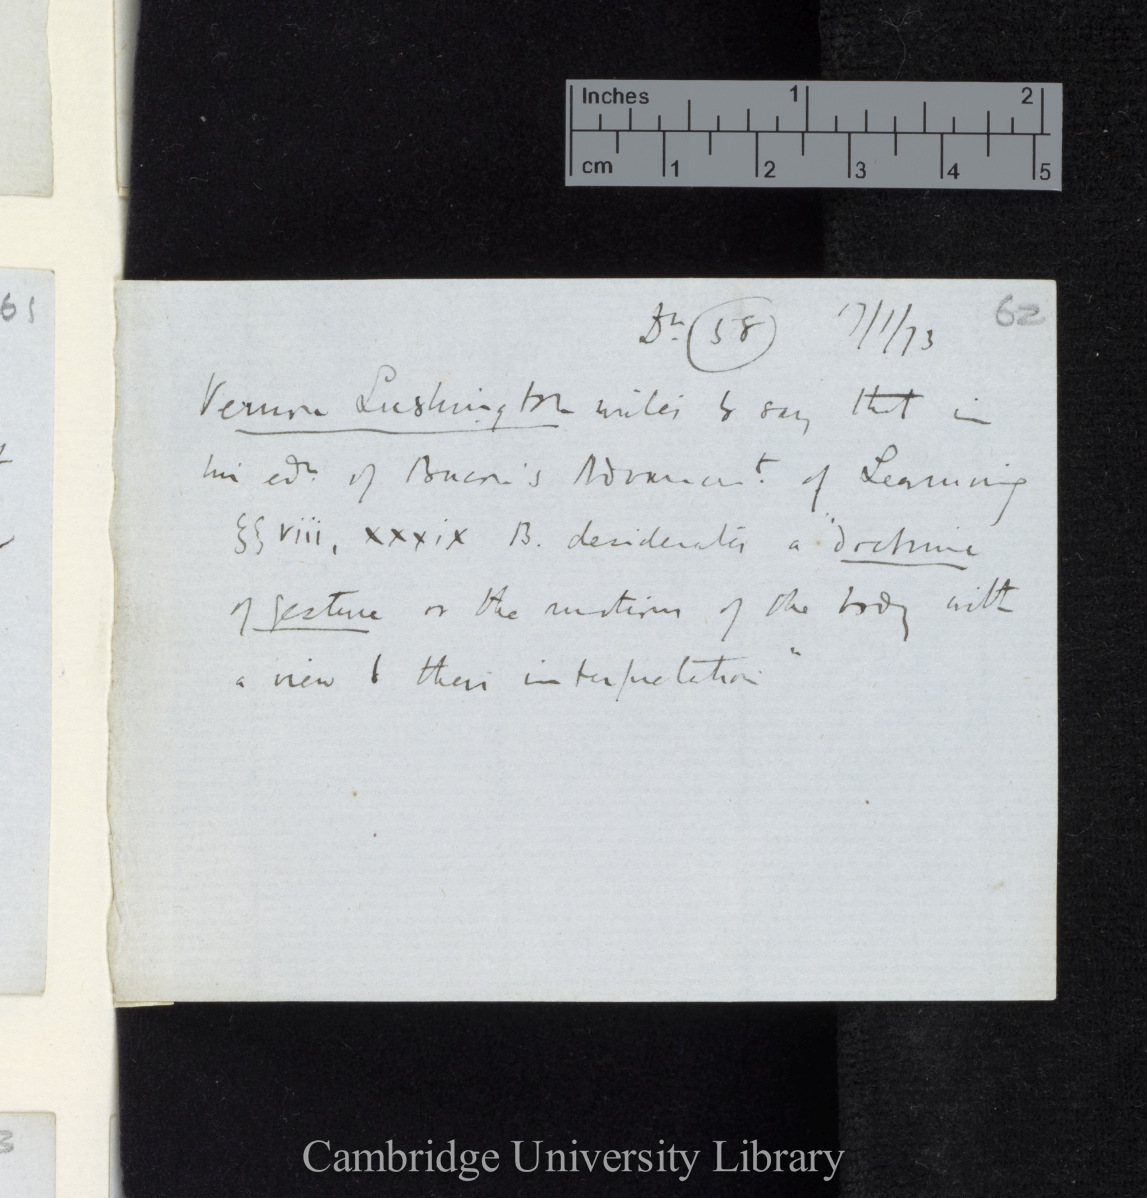 Inches 1 2
cm 1 2 3 4 5
61
62
Dn 58 17/1/73
Vernon Lushington writes to say that in
his edn. of Bacon's Advancmt. of Learning
§§ viii, xxxix B. desiderates a "doctrine
of gesture or the motions of the body with
a view to their interpretation"
3
Cambridge University Library